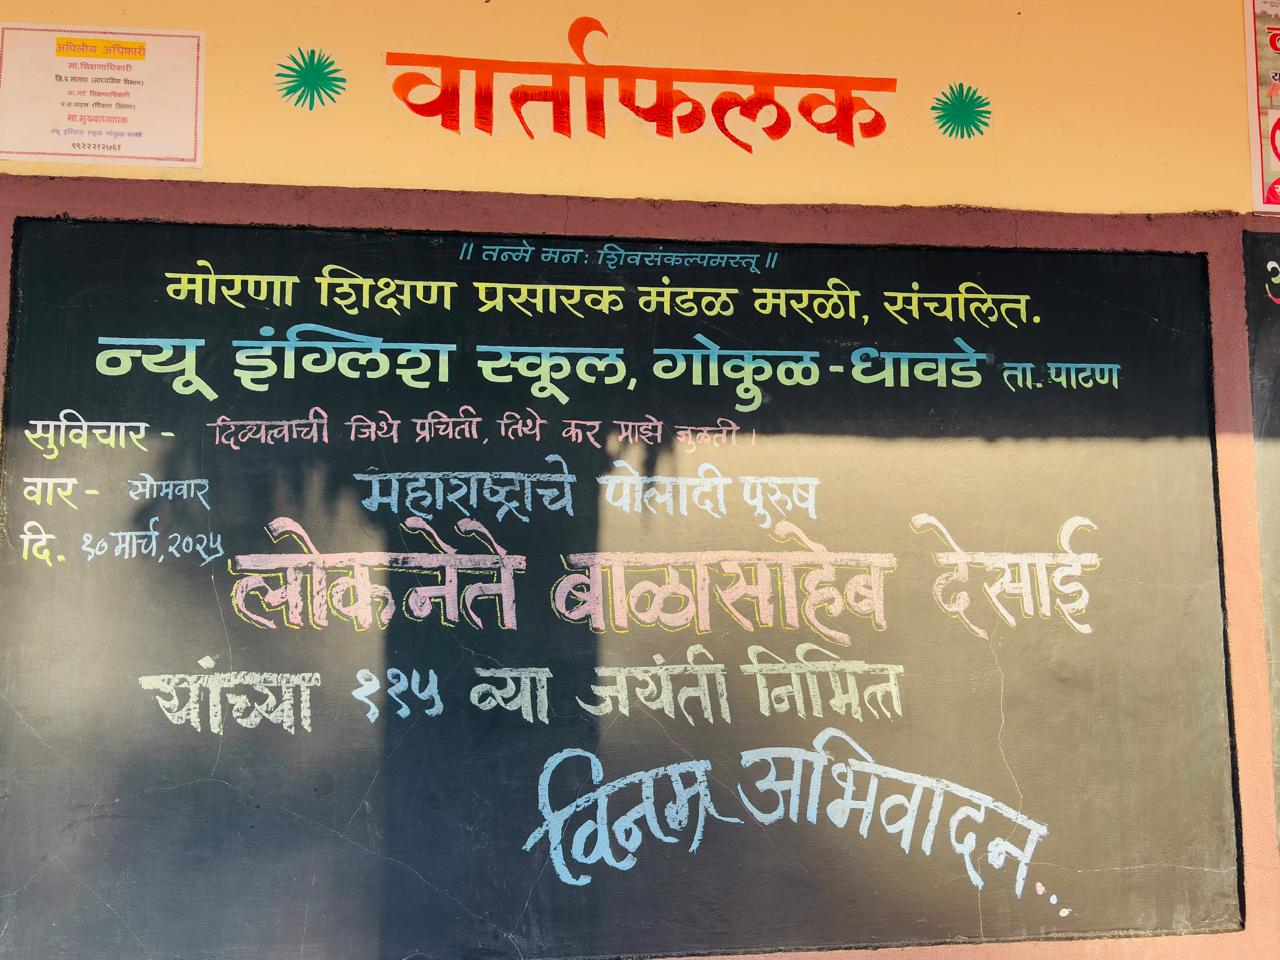 अपिलीय अधिकारी
मा.शिक्षणाधिकारी
जि.प.सातारा (माध्यमिक विभाग)
मा.गट शिक्षणाधिकारी
प.स.पाटण (शिक्षण विभाग)
मा.मुख्याध्यापक
न्यू इंग्लिश स्कूल गोकुळ-धावडे
९९२२२१२७६१
वार्ताफलक
॥ तन्मे मनः शिवसंकल्पमस्तू ॥
मोरणा शिक्षण प्रसारक मंडळ मरळी, संचलित.
न्यू इंग्लिश स्कूल, गोकुळ - धावडे ता. पाटण
सुविचार - दिव्यत्वाची जिथे प्रचिती, तिथे कर माझे जुळती।
वार - सोमवार
महाराष्ट्राचे पोलादी पुरुष
दि. १० मार्च, २०२५
लोकनेते बाळासाहेब देसाई
यांच्या ११५ व्या जयंती निमित्त
विनम्र अभिवादन..